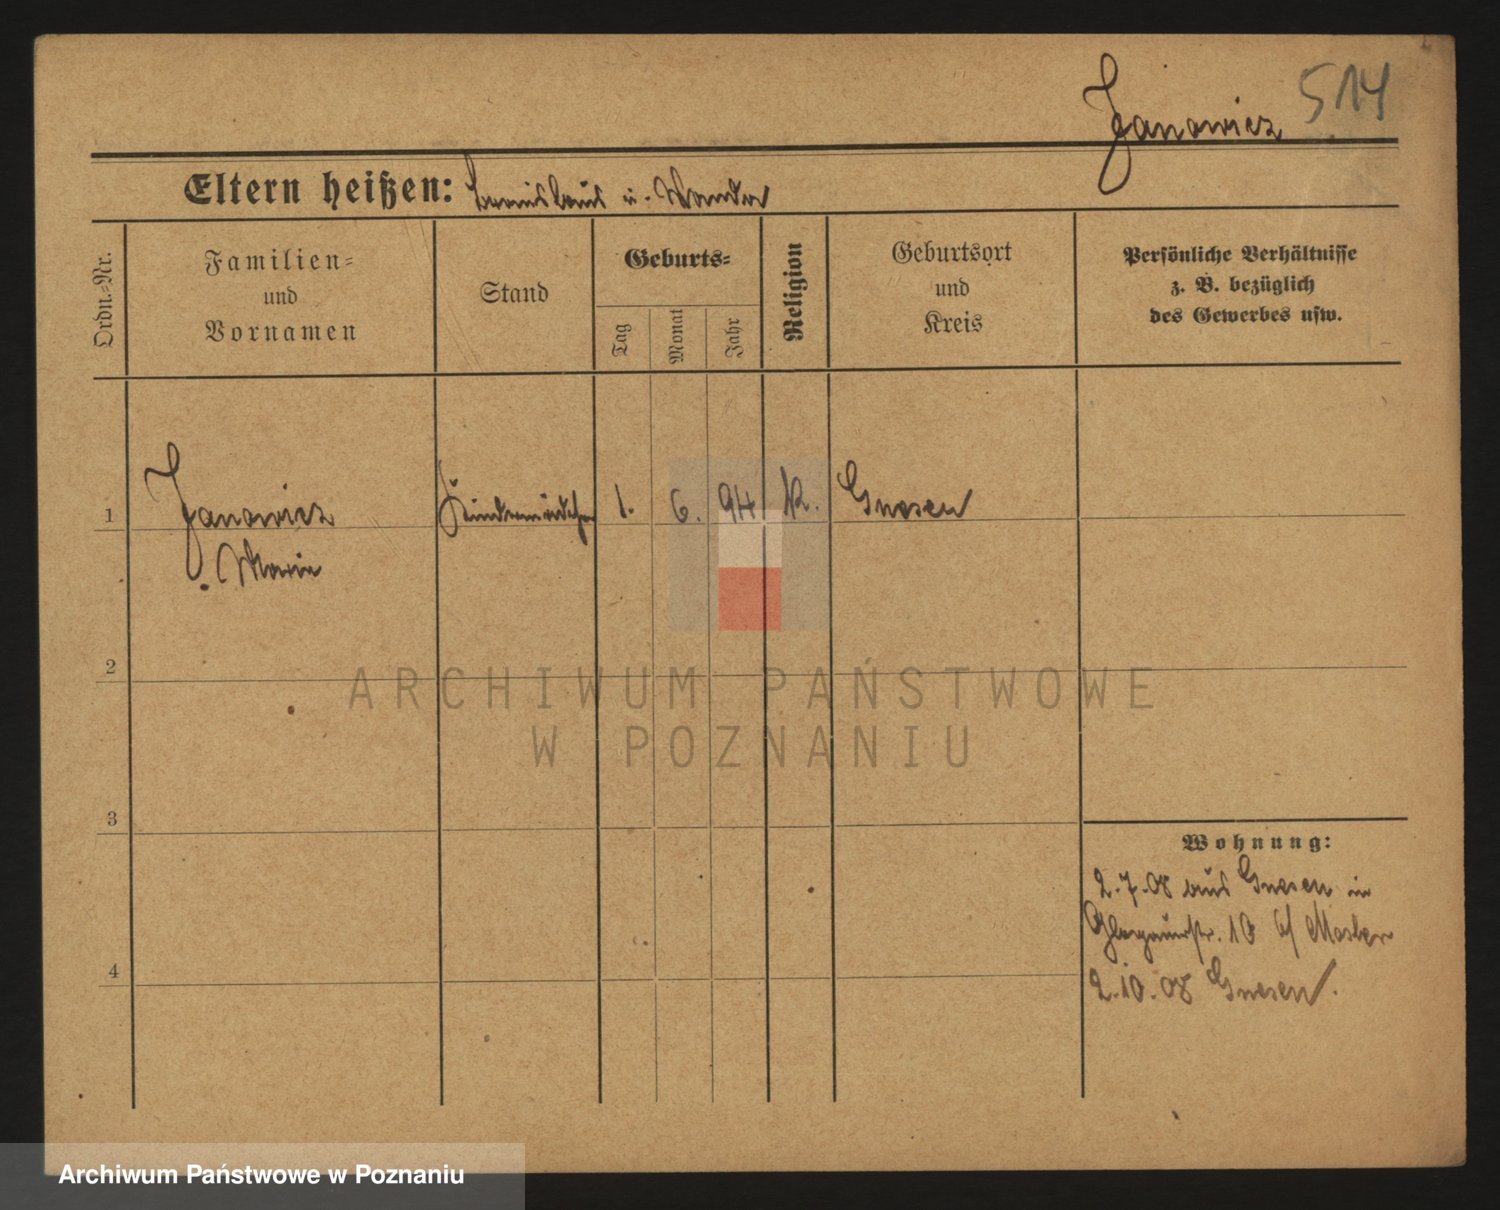 514
Janowicz
Eltern heißen: Stanislaus u. Wanda
Ordn.-Nr.
Familien-
und
Vornamen
Stand
Geburts-
Tag
Monat
Jahr
Religion
Geburtsort
und
Kreis
Persönliche Verhältnisse
z. B. bezüglich
des Gewerbes usw.
1 Janowicz Kindermädchen 1. 6. 94 K. Gnesen
Marie
2
3
4
Wohnung:
2.7.08 aus Gnesen in
Glogauerstr. 10 b/
2.10.08 Gnesen.
ARCHIWUM PAŃSTWOWE
W POZNANIU
Archiwum Państwowe w Poznaniu